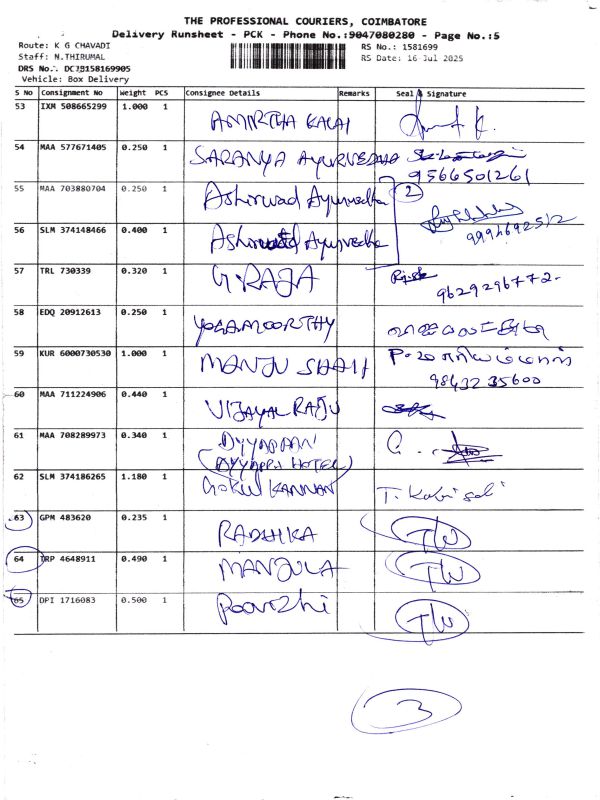 THE PROFESSIONAL COURIERS, COIMBATORE
Delivery Runsheet - PCK - Phone No.:9047080280 - Page No.:5
Route: K G CHAVADI
RS No.: 1581699
Staff: N.THIRUMAL
RS Date: 16 Jul 2025
DRS No.: DC7B158169905
Vehicle: Box Delivery
S No Consignment No Weight PCS Consignee Details Remarks Seal & Signature
53 IXM 508665299 1.000 1 AMIRTHA KALAI
54 MAA 577671405 0.250 1 SARANYA AYURVEDHA 9566501261
55 MAA 703880704 0.250 1 Ashirwad Ayurvedha 2
56 SLM 374148466 0.400 1 Ashirwad Ayurvedha 9994692512
57 TRL 730339 0.320 1 G.RAJA 9629296772
58 EDQ 20912613 0.250 1 YOGAMOORTHY
59 KUR 6000730530 1.000 1 MANJU SHAJI 9843235600
60 MAA 711224906 0.440 1 VIJAYAL RAJU
61 MAA 708289973 0.340 1 IYYAPPAN
(IYYAPPA HOTEL)
62 SLM 374186265 1.180 1 GOKUL KANNAN T.
63 GPM 483620 0.235 1 RADHIKA TW
64 TRP 4648911 0.490 1 MANJULA TW
65 DPI 1716083 0.500 1 Poovizhi TW
3